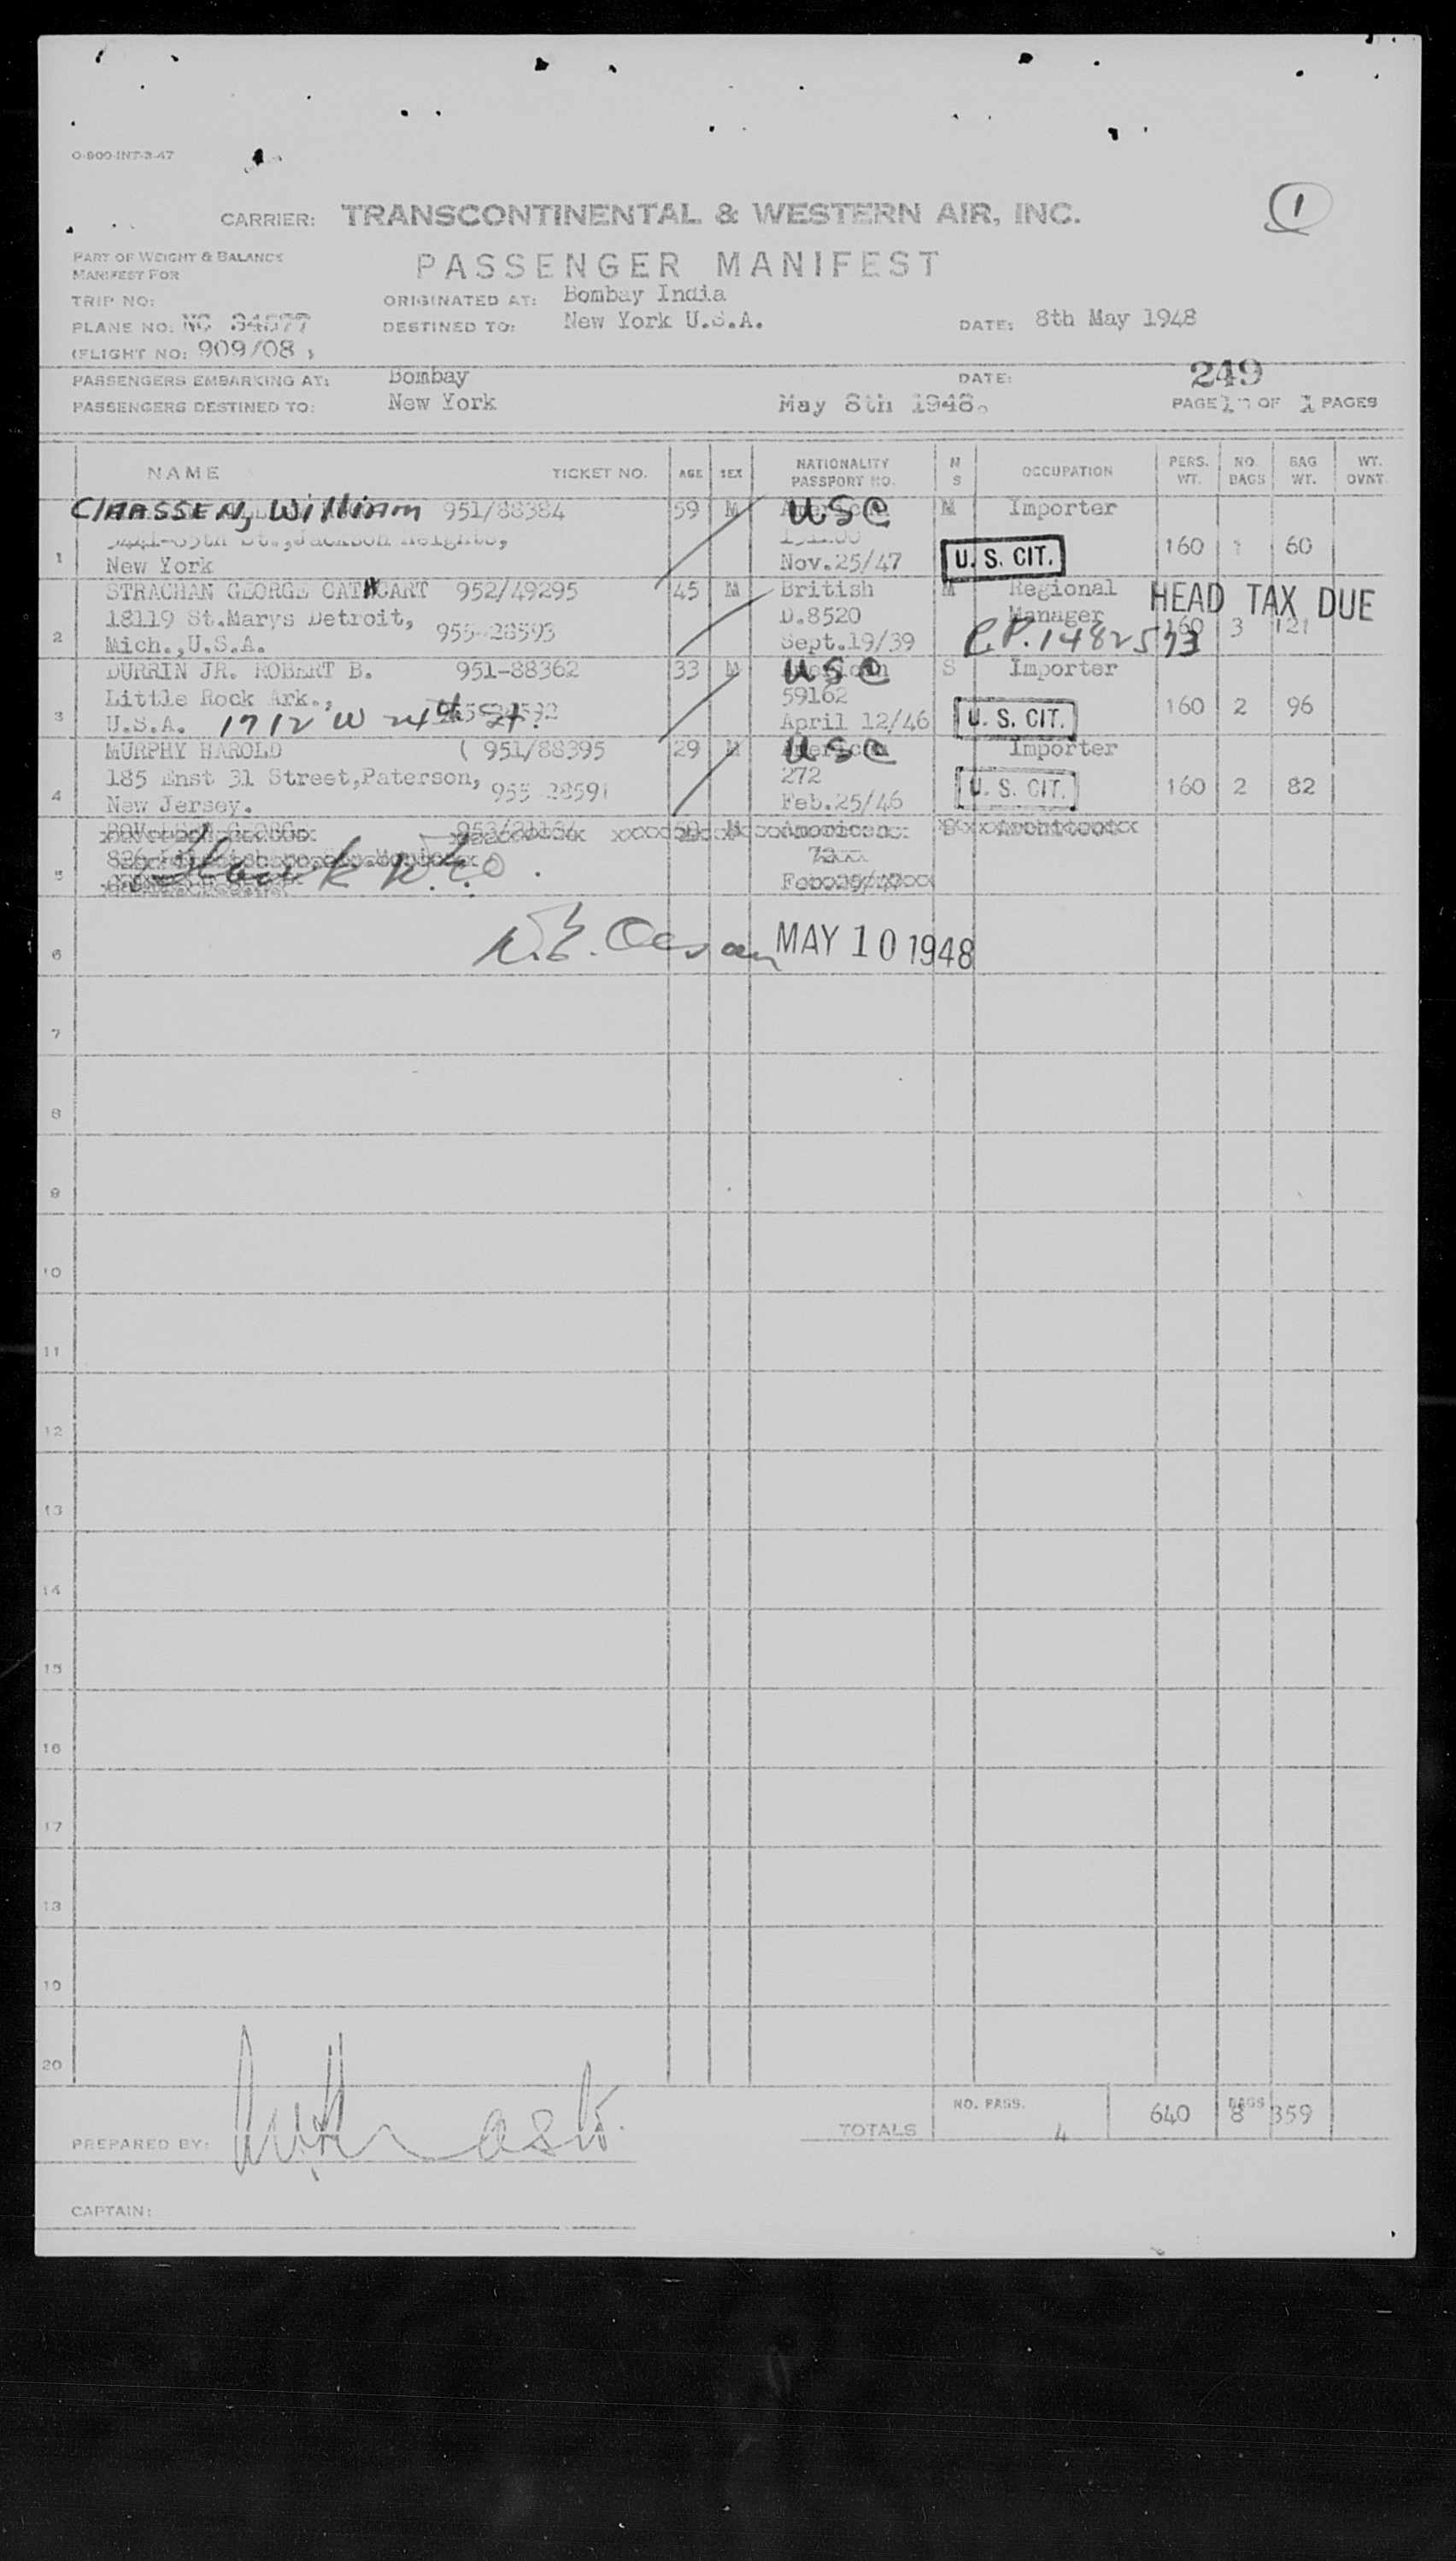 O-800-INT-3-47
1
CARRIER: TRANSCONTINENTAL & WESTERN AIR, INC.
PART OF WEIGHT & BALANCE
MANIFEST FOR
PASSENGER MANIFEST
TRIP NO:
ORIGINATED AT: Bombay India
PLANE NO: NC 34577
DESTINED TO: New York U.S.A.
DATE: 8th May 1948
(FLIGHT NO: 909/08 )
249
PASSENGERS EMBARKING AT: Bombay
DATE:
PASSENGERS DESTINED TO: New York
May 8th 1948.
PAGE 1 OF 1 PAGES
NAME TICKET NO. AGE SEX NATIONALITY PASSPORT NO. M S OCCUPATION PERS. WT. NO. BAGS BAG WT. WT. OVNT.
CLAASSEN, William 951/88384 59 M USC M Importer
St., Jackson Heights,
1 New York Nov.25/47 U. S. CIT. 160 1 60
STRACHAN GEORGE CATHCART 952/49295 45 M British M Regional HEAD TAX DUE
18119 St.Marys Detroit, 955-28593 D.8520 Manager
2 Mich.,U.S.A. Sept.19/39 P.P. 1482573 160 3 121
DURRIN JR. ROBERT B. 951-88362 33 M USC S Importer
Little Rock Ark., 59162
3 U.S.A. 1712 W 24th St. April 12/46 U. S. CIT. 160 2 96
MURPHY HAROLD ( 951/88395 29 M USC Importer
185 Enst 31 Street,Paterson, 955-28591 272
4 New Jersey. Feb.25/46 U. S. CIT. 160 2 82
5
6 MAY 10 1948
7
8
9
10
11
12
13
14
15
16
17
18
19
20
TOTALS NO. PASS. 4 640 BAGS 8 359
PREPARED BY:
CAPTAIN: